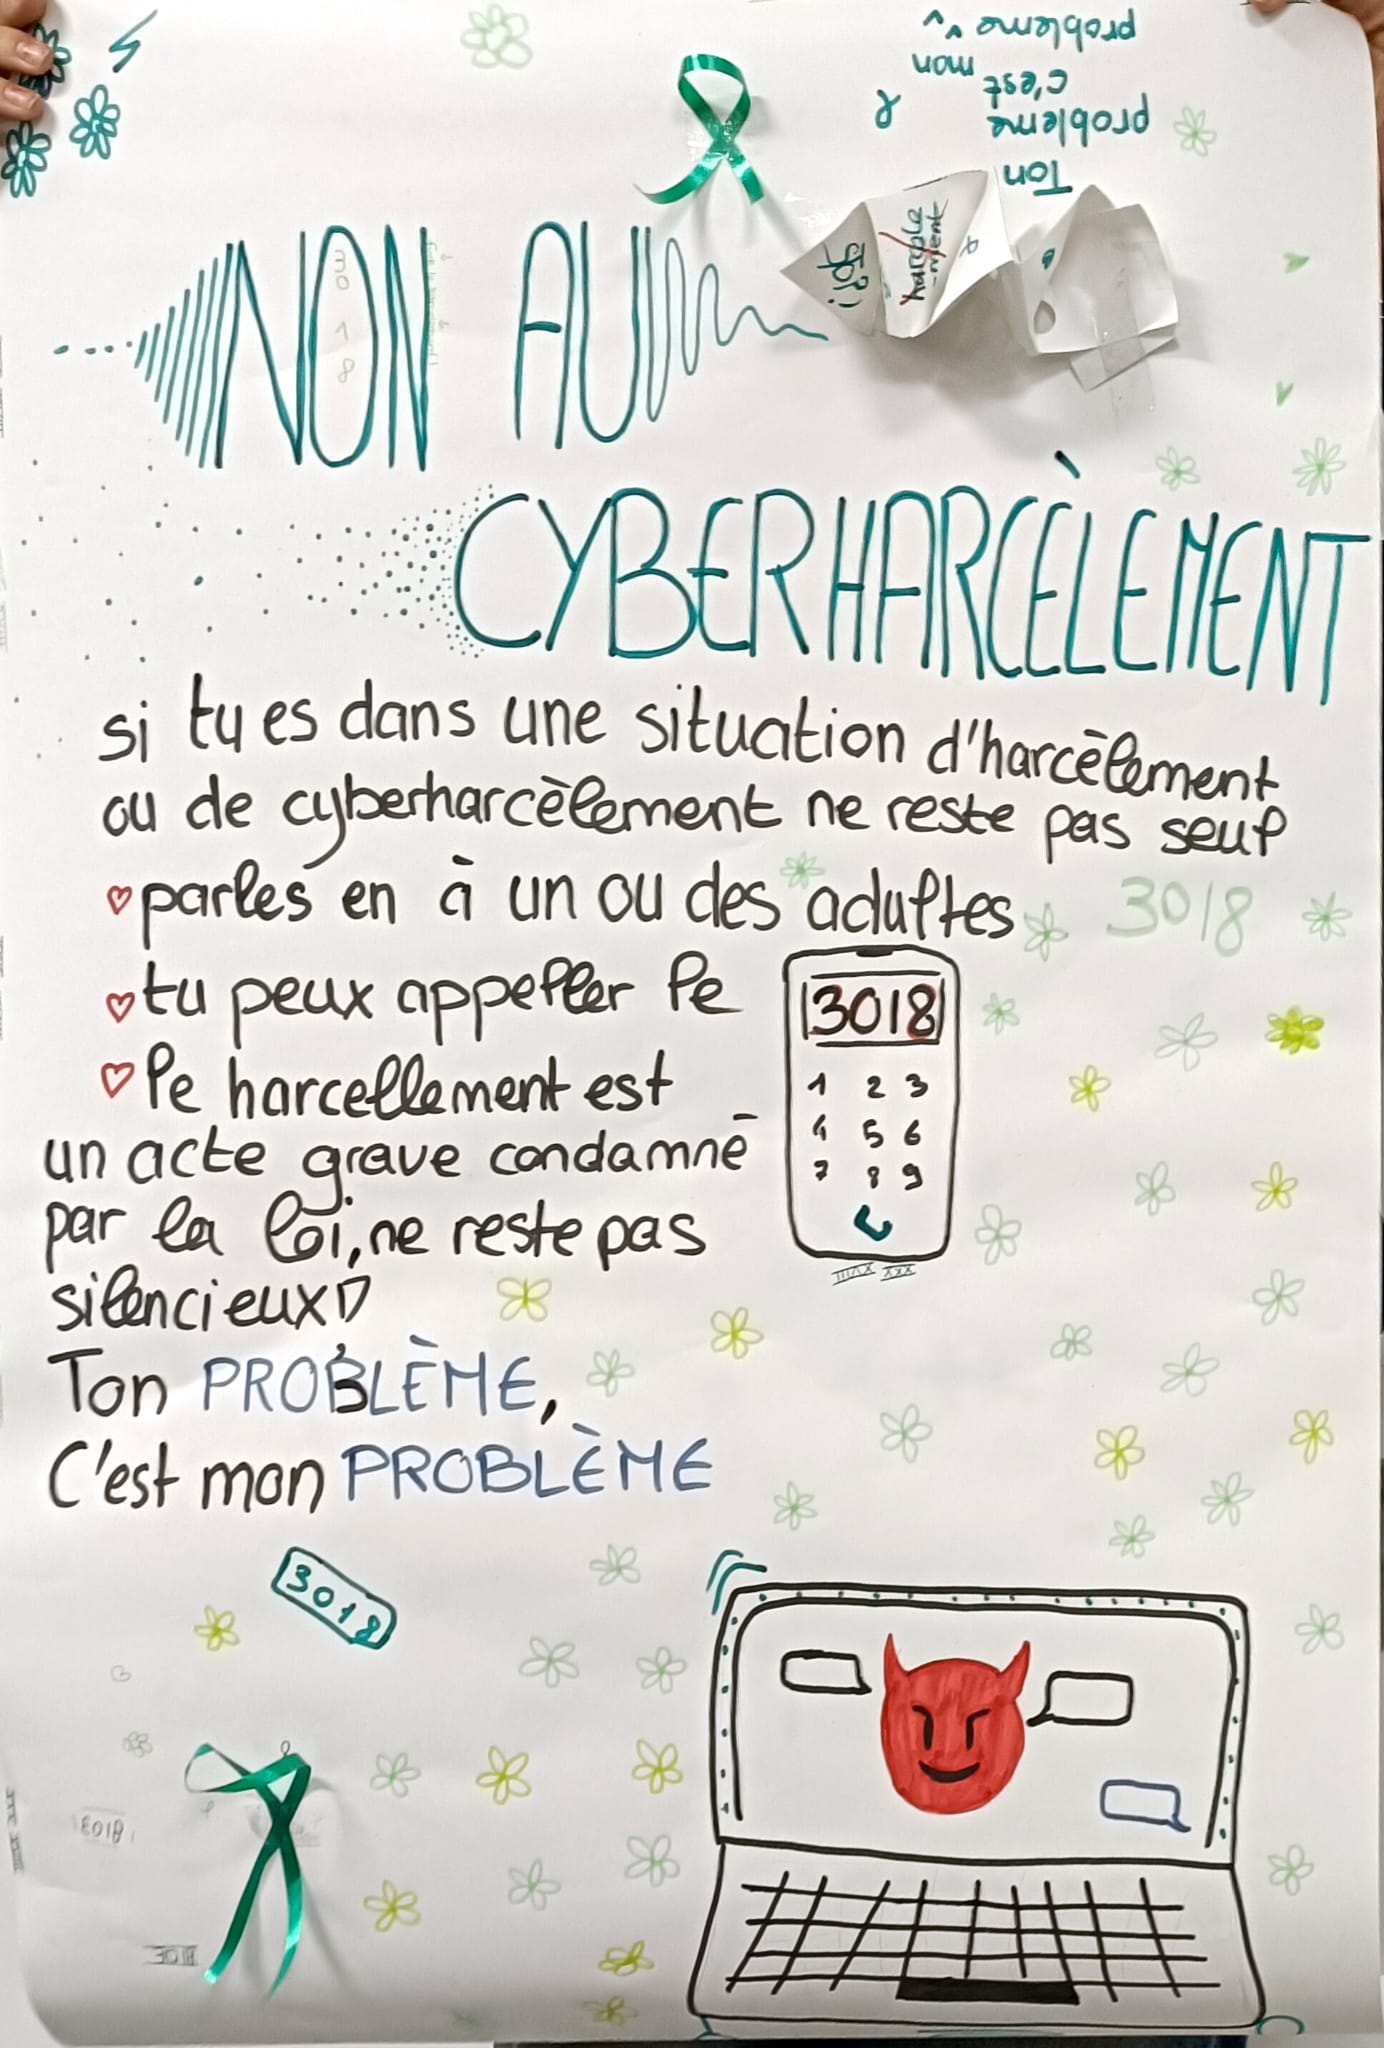 Ton
problème
c'est
mon
problème
stop!
harcèle
-ment
NON AU
CYBERHARCÈLEMENT
si tu es dans une situation d'harcèlement
ou de cyberharcèlement ne reste pas seul
parles en à un ou des adultes
3018
tu peux appeller le
3018
1 2 3
4 5 6
7 8 9
le harcellement est
un acte grave condamné
par la loi, ne reste pas
silencieux
Ton PROBLÈME,
C'est mon PROBLÈME
3018
3018
3018